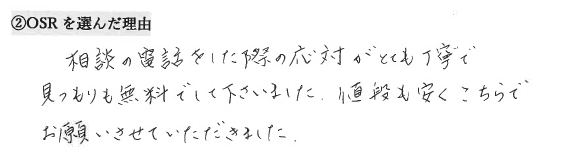 ②OSRを選んだ理由
相談の電話をした際の応対がとても丁寧で
見つもりも無料でして下さいました。値段も安くこちらで
お願いさせていただきました。